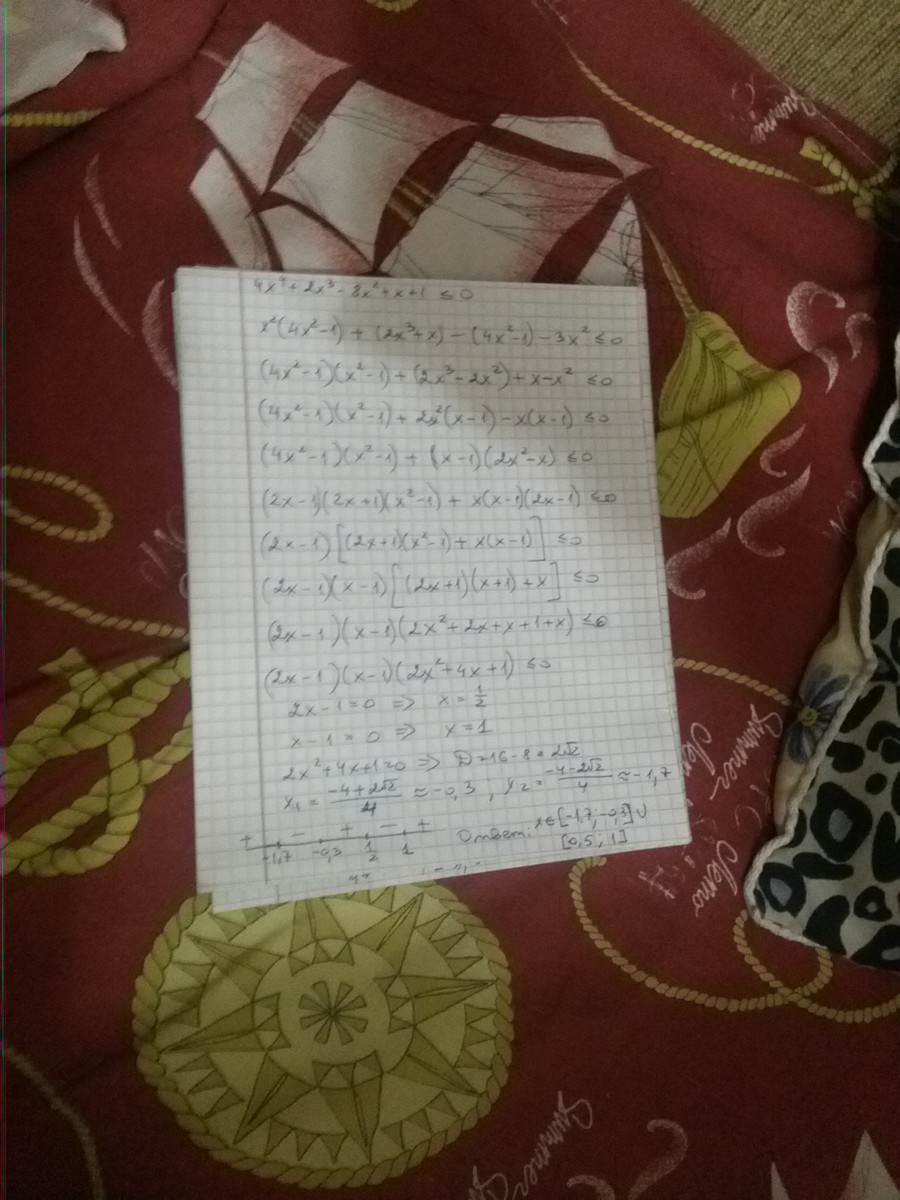 4x⁴ + 2x³ - 8x² + x + 1 ≤ 0
x²(4x²-1) + (2x³+x) - (4x²-1) - 3x² ≤ 0
(4x²-1)(x²-1) + (2x³-2x²) + x-x² ≤ 0
(4x²-1)(x²-1) + 2x²(x-1) - x(x-1) ≤ 0
(4x²-1)(x²-1) + (x-1)(2x²-x) ≤ 0
(2x-1)(2x+1)(x²-1) + x(x-1)(2x-1) ≤ 0
(2x-1)[(2x+1)(x²-1) + x(x-1)] ≤ 0
(2x-1)(x-1)[(2x+1)(x+1)+x] ≤ 0
(2x-1)(x-1)(2x²+2x+x+1+x) ≤ 0
(2x-1)(x-1)(2x²+4x+1) ≤ 0
2x-1=0 ⇒ x = 1/2
x-1=0 ⇒ x=1
2x²+4x+1=0 ⇒ D=16-8=2√2
x₁ = (-4+2√2)/4 ≈ -0,3 ; x₂ = (-4-2√2)/4 ≈ -1,7
+ - + - +
-1,7 -0,3 1/2 1
Ответ: x∈[-1,7; -0,3] ∪
[0,5; 1]
Summer
Summer
Summer